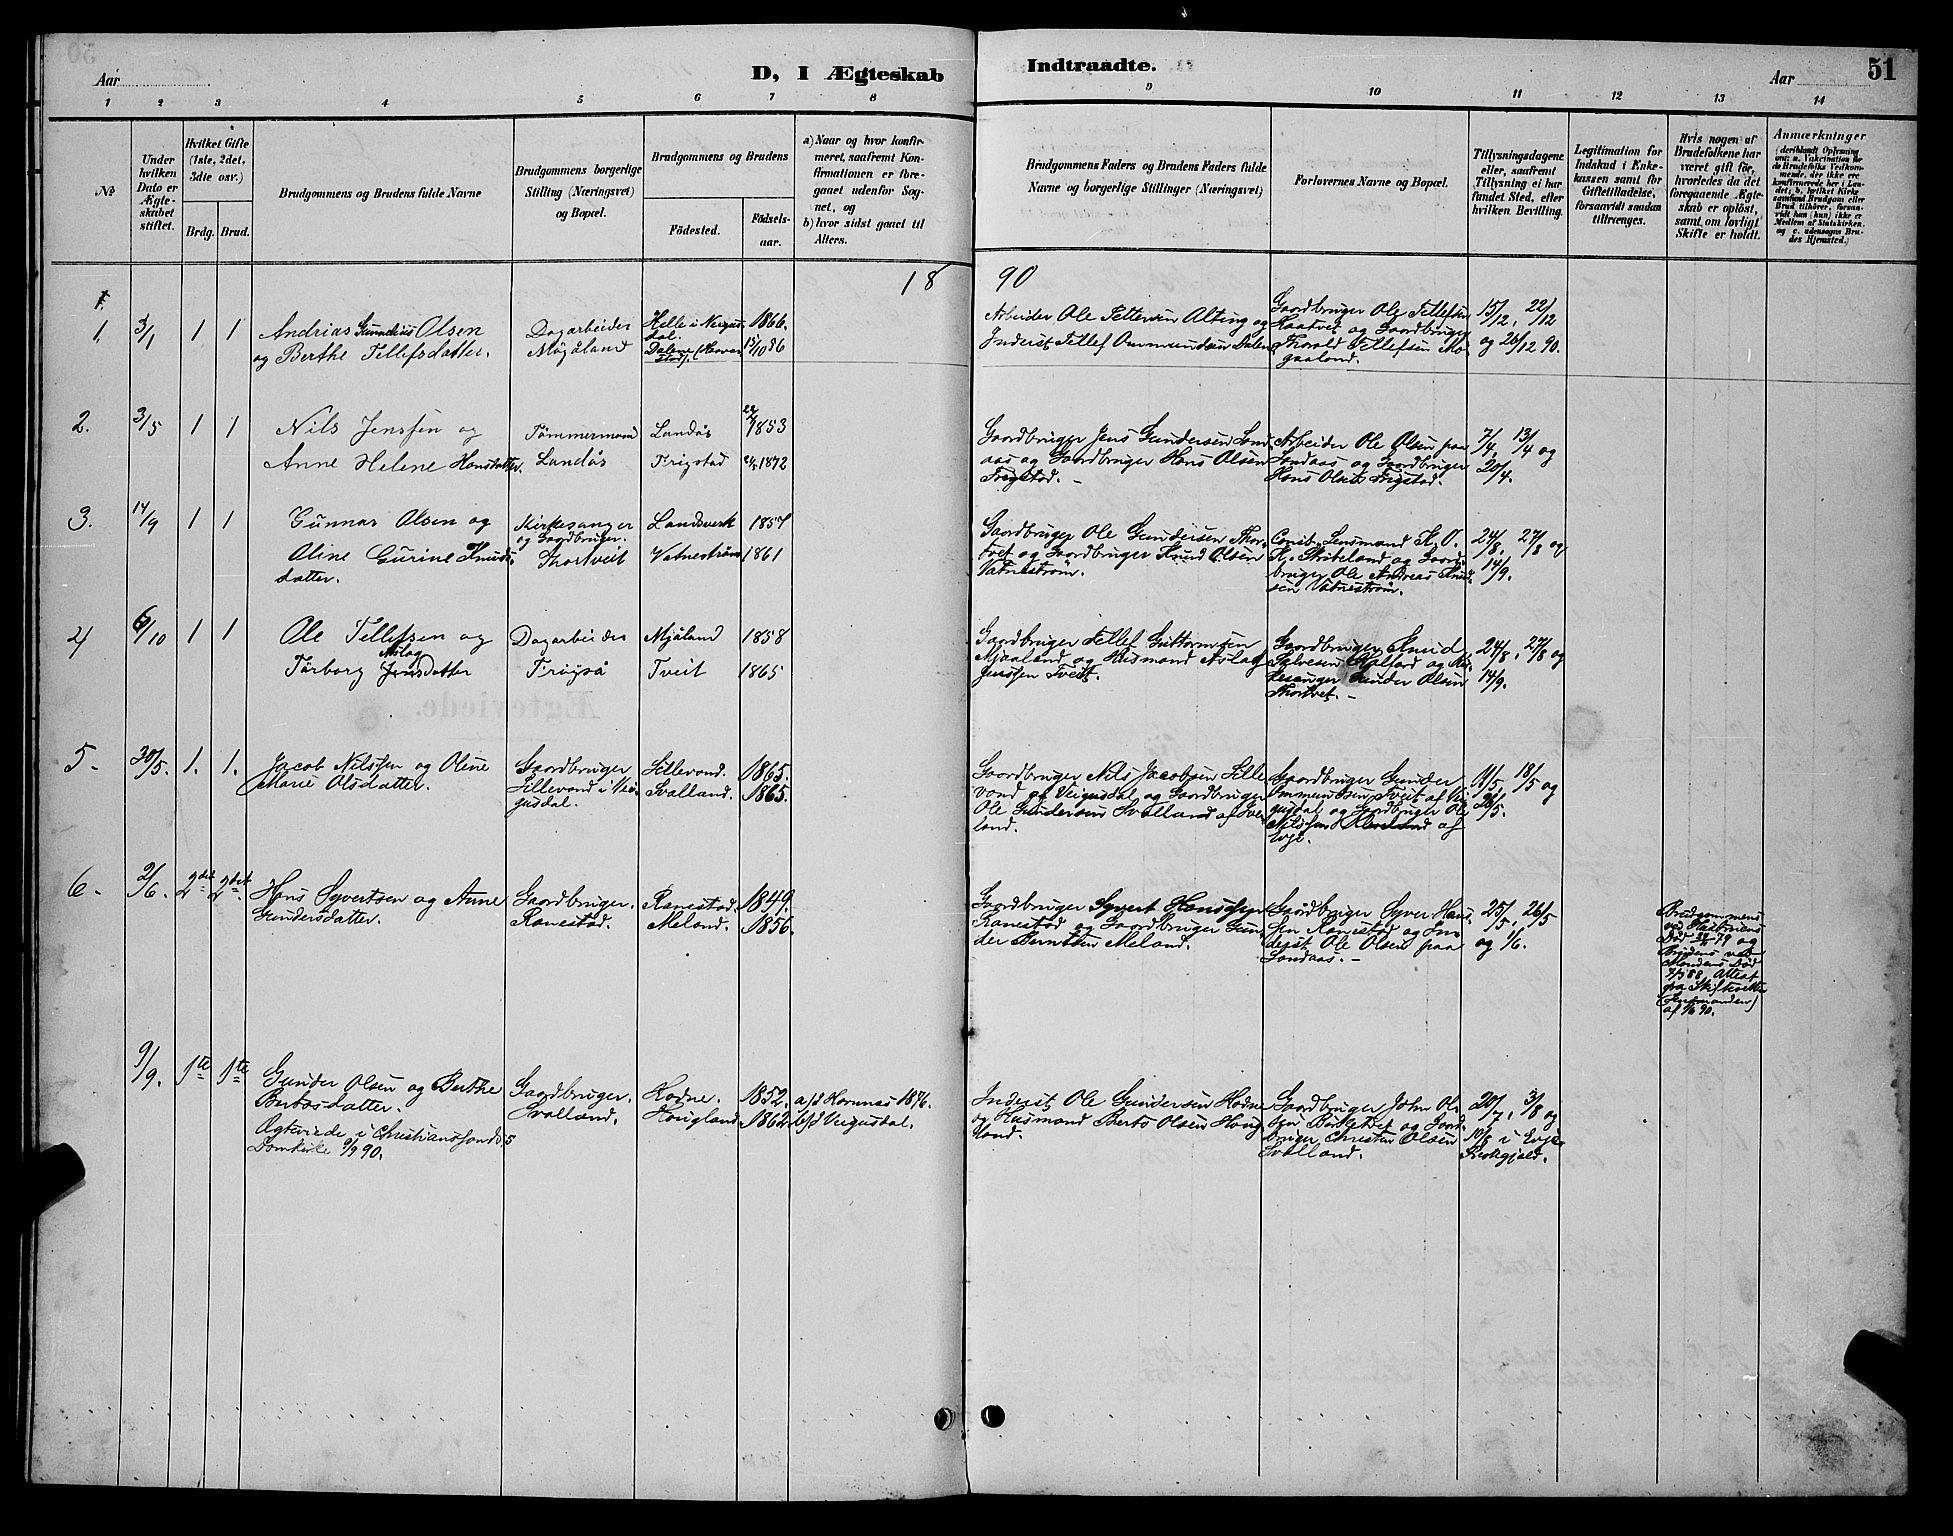 Aar
D, I Ægteskab
Indtraadte.
Aar
51
1 2 3 4 5 6 7 8 9 10 11 12 13 14
No
Under hvilken Dato er Ægteskabet stiftet.
Hvilket Gifte (1ste, 2det, 3die osv.)
Brdg.
Brud.
Brudgommens og Brudens fulde Navne
Brudgommens borgerlige Stilling (Næringsvei) og Bopæl.
Brudgommens og Brudens
Födested.
Födselsaar.
a) Naar og hvor konfirmeret, saafremt Konfirmationen er foregaaet udenfor Sognet, og
b) hvor sidst gaaet til Alters.
Brudgommens Faders og Brudens Faders fulde Navne og borgerlige Stillinger (Næringsvei)
Forlovernes Navne og Bopæl.
Tillysningsdagene eller, saafremt Tillysning ei har fundet Sted, efter hvilken Bevilling.
Legitimation for Indskud i Enkekassen samt for Giftetilladelse, forsaavidt saadan tiltrænges.
Hvis nogen af Brudefolkene har været gift før, hvorledes da det foregaaende Ægteskab er oplöst, samt om lovligt Skifte er holdt.
Anmærkninger (deriblandt Oplysning om: a. Vakcination for de Brudefolks Vedkommende, der ikke ere konfirmerede her i Landet; b. hvilket Kirkesamfund Brudgom eller Brud tilhörer, forsaavidt han (hun) ikke er Medlem af Statskirken, og c. udensogns Brudes Hjemsted.)
18 90
1. 3/1 1 1
Andrias Gunnelius Olsen
og Berthe Tellefsdatter.
Dagarbeider
Mögåland
Helle i Veigusdal.
Dalene (Hovanstad).
1866.
15/10 86
Arbeider Ole Tellefsen Alting og
Inderst Tellef Ommundsen Dalen
Gaardbruger Ole Tellefsen
Kaatvet og Gaardbruger
Thorald Tellefsen Mogaaland.
15/12, 22/12
og 26/12 90.
2. 3/5 1 1
Nils Jenssen og
Anne Helene Hansdatter.
Tömmermand
Landås
Landås
Frigstad
1853
1872
Gaardbruger Jens Gundersen Landaas
og Gaardbruger Hans Olsen
Frigstad. -
Arbeider Ole Olsen paa
Landaas og Gaardbruger
Hans Olsen Frigstad.
7/4, 13/4 og
20/4.
3. 14/9 1 1
Gunnar Olsen og
Aline Gurine Knudsdatter.
Kirkesanger
og Gaardbruger.
Thortveit
Landsverk
Vatneström
1857
1861
Gaardbruger Ole Gundersen Thortvet
og Gaardbruger Knud Olsen
Vatneström.
Const. Lensmand K. O.
K. Skibeland og Gaardbruger
Ole Andreas Knudsen
Vatneström.
24/8, 27/8 og
14/9.
4 6/10 1 1
Ole Tellefsen og
Torborg Aslag Jensdatter
Dagarbeider
Frigså
Mjåland
Tveit
1858
1865
Gaardbruger Tellef Guttormsen
Mjaaland og Husmand Aslag
Jenssen Tveit.
Gaardbruger Knud
Salvesen og Kirkesanger
Gunder Olsen
Thortvet. -
24/8, 27/8 og
14/9.
5- 30/5. 1. 1.
Jacob Nilssen og Olene
Marie Olsdatter.
Gaardbruger
Lillevand i Veigusdal.
Lillevand.
Svalland.
1865.
1865.
Gaardbruger Nils Jacobsen Lillevand
og Veigusdal og Gaardbruger
Ole Gundersen Svalland af Iveland.
Gaardbruger Gunder
Ommundsen Tveit af Veigusdal
og Gaardbruger Ole
Nilssen Kleveland af
Evje.
11/5, 18/5 og
26/5.
6- 2/6. 2det 2det
Hans Syvertsen og Anne
Gundersdatter.
Gaardbruger.
Ranestad.
Ranestad.
Meland.
1849.
1856.
Gaardbruger Syvert Hanssen
Ranestad og Gaardbruger Gunder
Berntsen Meland.
Gaardbruger Syver Hanssen
Ranestad og Inderst
Ole Olsen paa
Landaas. -
25/5, 26/5
og 1/6.
Brudgommens
ved Hustruens
Död 79 og
Brudens ved
Mandens Död
88. Attest
fra Skifteretten
(Lensmanden)
af 90.
9/9. 1ste 1ste
Gunder Olsen og Berthe
Bertosdatter.
Ægteviede i Christianssands
Domkirke 9/9 90.
Gaardbruger.
Svalland.
Hodne.
Hougland.
1852.
1862
a/ i Hornnes 1876.
b/ i Veigusdal.
Inderst Ole Gundersen Hodne
og Husmand Berto Olsen Hougland.
Gaardbruger John Olsen
og Gaardbruger
Christen Olsen
Svalland.
20/7, 3/8 og
10/8 i Evje
Prestgjæld.